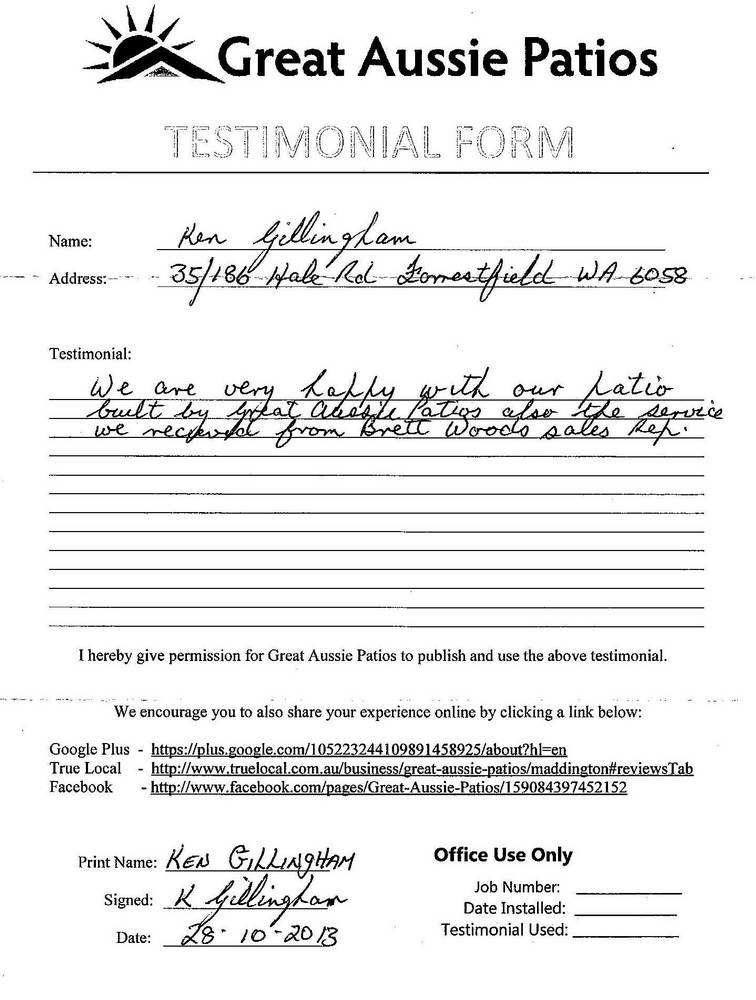 Great Aussie Patios
TESTIMONIAL FORM
Name: Ken Gillingham
Address: 35/186 Hale Rd Forrestfield WA 6058
Testimonial:
We are very happy with our patio
built by Great Aussie Patios also the service
we recieved from Brett Woods sales Rep.
I hereby give permission for Great Aussie Patios to publish and use the above testimonial.
We encourage you to also share your experience online by clicking a link below:
Google Plus - https://plus.google.com/105223244109891458925/about?hl=en
True Local - http://www.truelocal.com.au/business/great-aussie-patios/maddington#reviewsTab
Facebook - http://www.facebook.com/pages/Great-Aussie-Patios/159084397452152
Print Name: KEN GILLINGHAM
Signed: K Gillingham
Date: 28-10-2013
Office Use Only
Job Number:
Date Installed:
Testimonial Used: